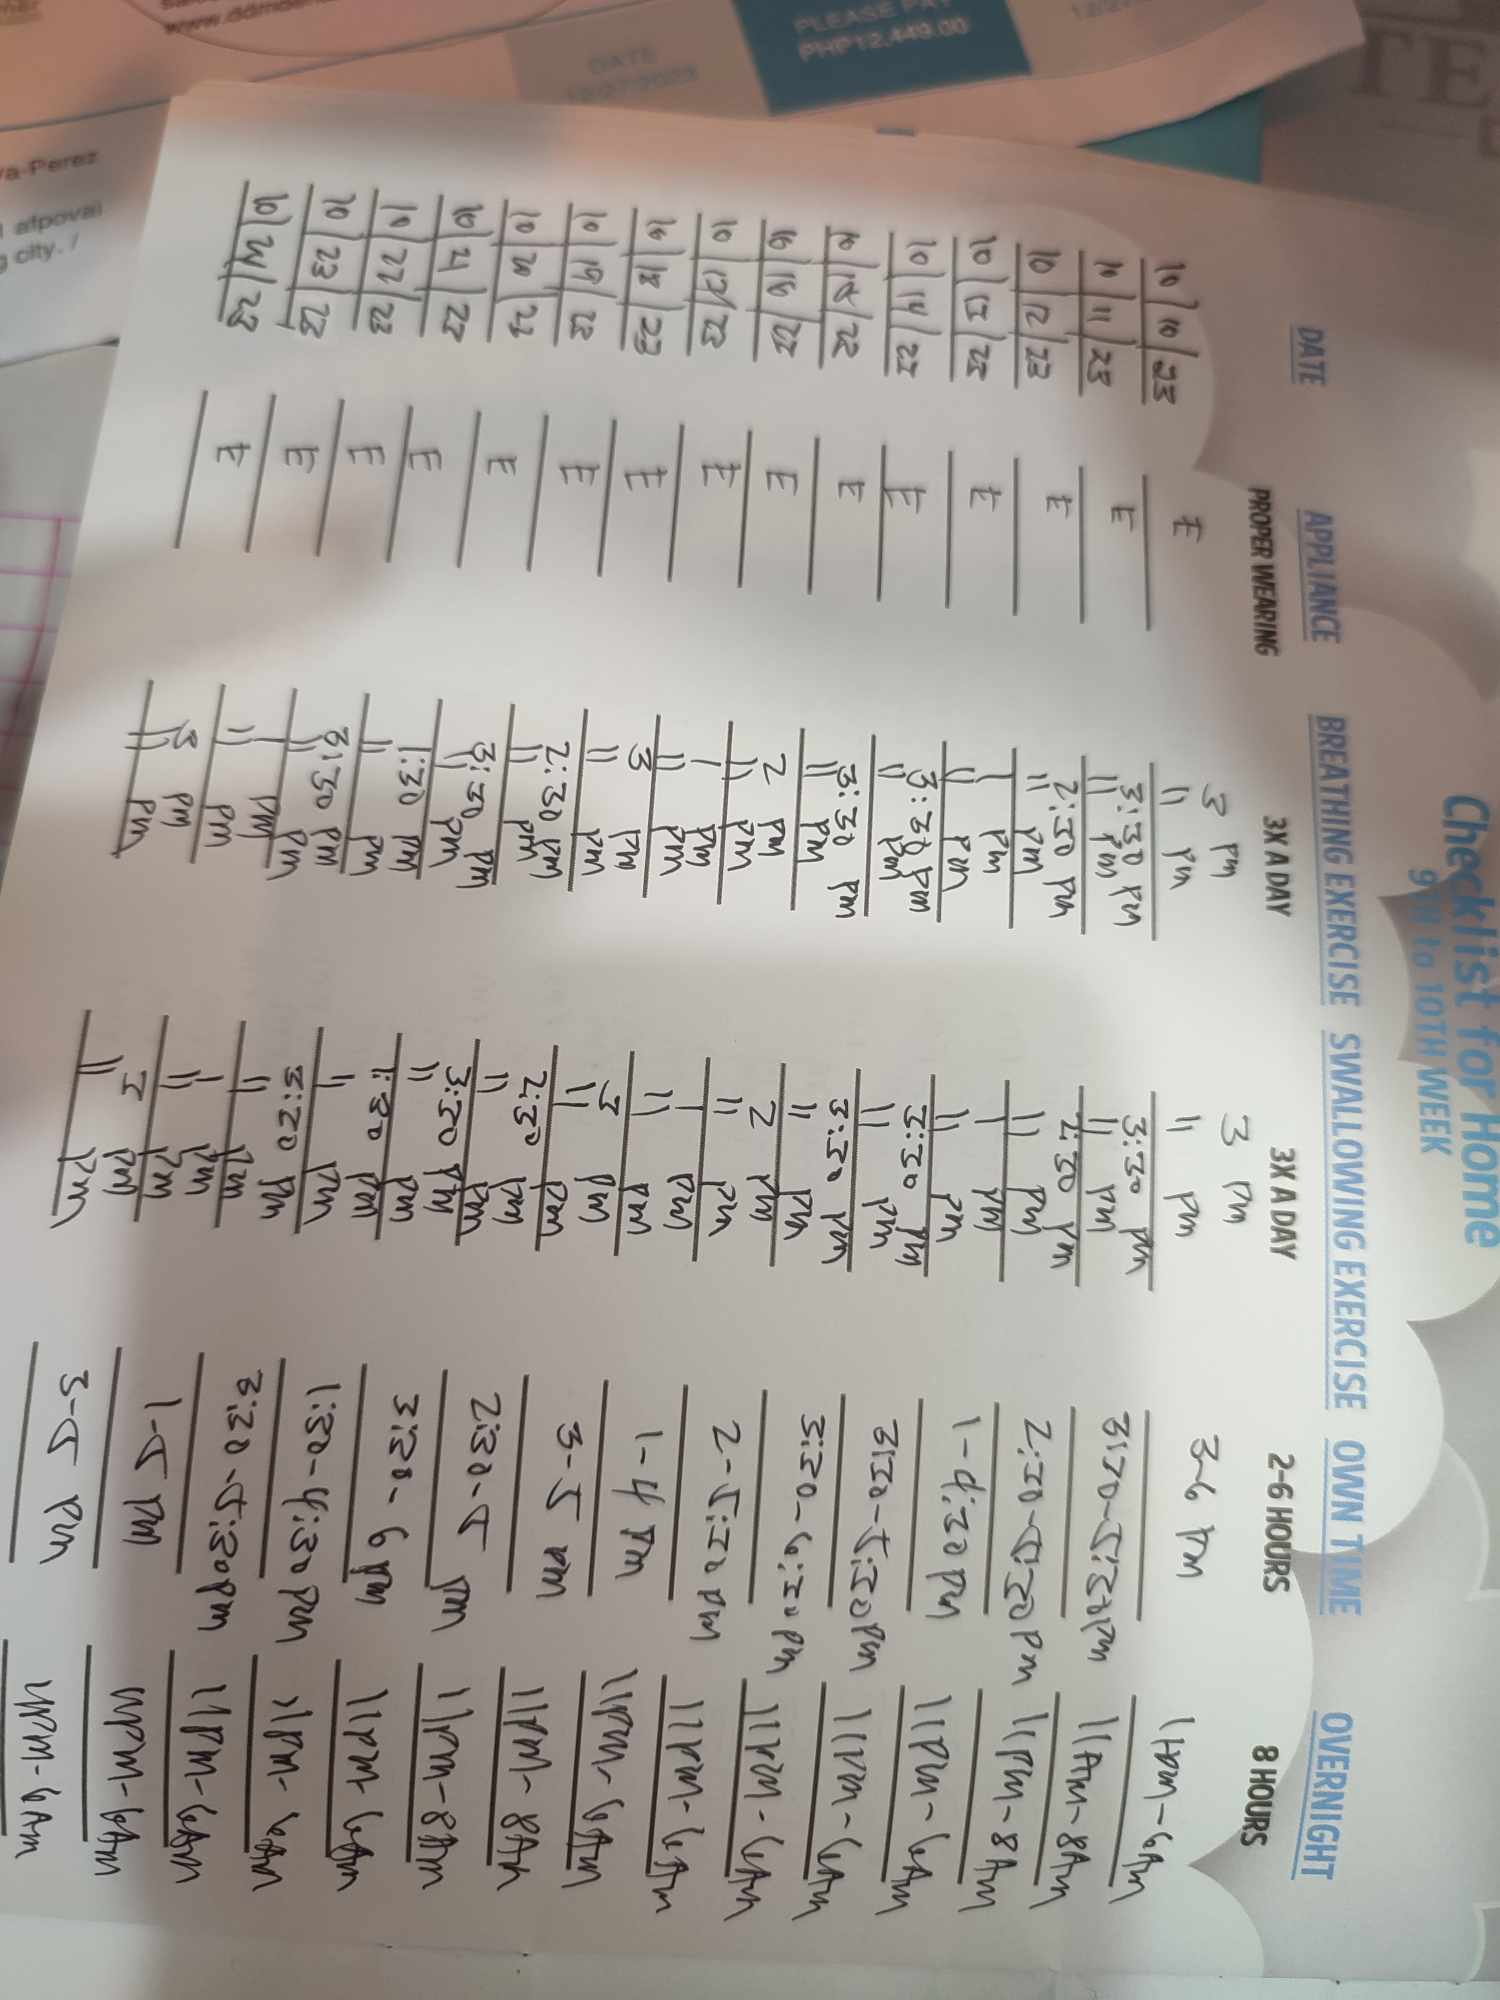 PLEASE PAY
PHP12,449.00
DATE
12/27/2023
va-Perez
Checklist for Home
9TH to 10TH WEEK
DATE APPLIANCE BREATHING EXERCISE SWALLOWING EXERCISE OWN TIME OVERNIGHT
PROPER WEARING 3X A DAY 3X A DAY 2-6 HOURS 8 HOURS
10/10/23 E 3 pm 3 pm 3-6 pm
11 pm 11 pm
10/11/23 E 3:30 pm 3:30 pm 3:30-5:30pm 11Am-8Am
11 pm 11 pm
10/12/23 E 2:30 pm 2:30 pm 2:30-5:30pm 11pm-8Am
11 pm 11 pm
10/13/23 E 1 pm 1 pm 1-4:30pm 11pm-6Am
11 pm 11 pm
10/14/23 E 3:30 pm 3:30 pm 3:30-5:30pm 11pm-6Am
11 pm 11 pm
10/15/23 E 3:30 pm 3:30 pm 3:30-6:30pm 11pm-6Am
11 pm 11 pm
10/16/23 E 2 pm 2 pm 2-5:30pm 11pm-6Am
11 pm 11 pm
10/17/23 E 1 pm 1 pm 1-4pm 11pm-6Am
11 pm 11 pm
10/18/23 E 3 pm 3 pm 3-5 pm 11pm-8Am
11 pm 11 pm
10/19/23 E 2:30 pm 2:30 pm 2:30-5 pm 11pm-8Am
11 pm 11 pm
10/20/23 E 3:30 pm 3:30 pm 3:30-6pm 11pm-6Am
11 pm 11 pm
10/21/23 E 1:30 pm 1:30 pm 1:30-4:30pm 11pm-6Am
11 pm 11 pm
10/22/23 E 3:30 pm 3:30 pm 3:30-5:30pm 11pm-6Am
11 pm 11 pm
10/23/23 E 1 pm 1 pm 1-5pm 11pm-6Am
11 pm 11 pm
10/24/23 E 3 pm 3 pm 3-5 pm 11pm-6Am
11 pm 11 pm